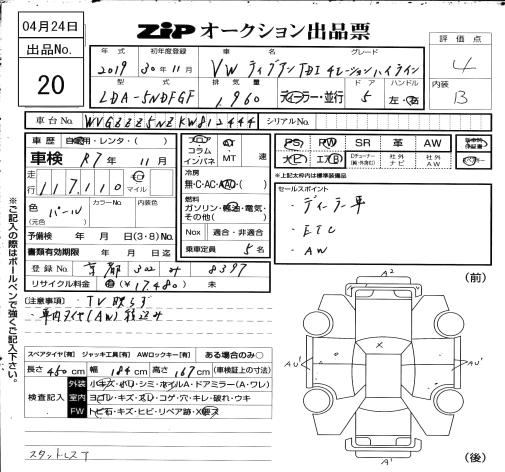 04月24日
ZIP オークション出品票
出品No.
20
評価点
4
内装
B
年式 初年度登録 車名 グレード
2019 30年11月 VW ティグアン TDI 4モーションハイライン
型式 排気量 ドア ハンドル
LDA-5NDFGF 1,960 ディーラー・並行 5 左・右
車台No. WVGZZZ5NZKW812444 シリアルNo.
車歴 自家用・レンタ・( )
車検 R7年 11月
走行 117,110 km マイル
色 パール
(元色)
カラーNo. 内装色
予備検 年 月 日(3・8)No.
書類有効期限 年 月 日迄
登録No. 京都 302 み 8397
リサイクル料金 (¥17,480) 未
コラム
インパネ
AT
MT
速
冷房
無・C・AC・AAC・( )
燃料
ガソリン・軽油・電気・
その他( )
Nox 適合・非適合
乗車定員 5名
PS PW SR 革 AW
ナビ エアB 社外ナビ 社外AW
※上記太枠内は標準装備品
セールスポイント
・ディーラー車
・ETC
・AW
(注意事項)
・TV映らず
・車内タイヤ(AW)積込み
※ご記入の際はボールペンで強くご記入下さい。
スペアタイヤ[有] ジャッキ工具[有] AWロックキー[有] ある場合のみ○
長さ 450cm 幅 184cm 高さ 167cm (車検証上の寸法)
検査記入
外装 小キズ・小ハリ・シミ・ホイルA・ドアミラー(A・ワレ)
室内 ヨゴレ・キズ・スレ・コゲ・穴・キレ・破れ・ウキ
FW トビ石・キズ・ヒビ・リペア跡・X要ス
スタットレスT
(前)
A2
X
AU'
AU'
A'
(後)